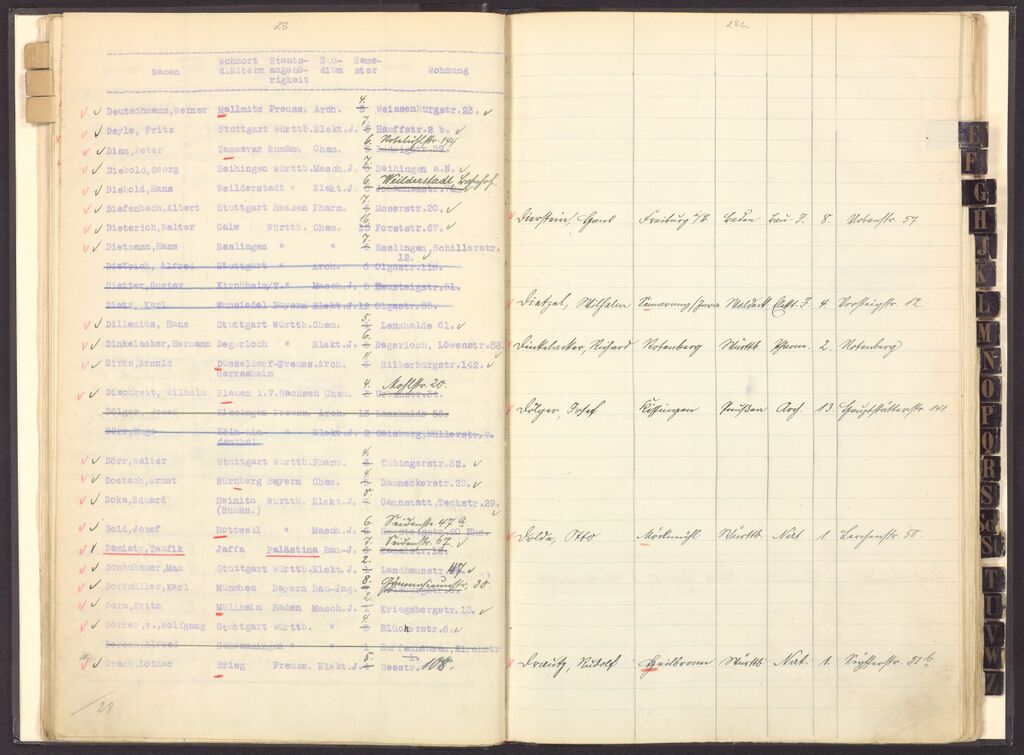 23
Namen Wohnort d.Eltern Staats-angehö-rigkeit Stu-dium Seme-ster Wohnung
Deutschmann,Werner Mallmitz Preuss. Arch. 4. Weissenburgstr.23.
Deyle, Fritz Stuttgart Württb.Elekt.J. 7. Hauffstr.2 b.
Dian,Peter Temesvar Rumän. Chem. 6. Rotebühlstr. 144
Diebold,Georg Beihingen Württb.Masch.J. 7. Beihingen a.N.
Diebold,Hans Weilderstadt " Elekt.J. 6. Weilderstadt Bahnhof.
Diefenbach,Albert Stuttgart Hessen Pharm. 7. Moserstr.20.
Dieterich,Walter Calw Württb. Chem. 16 Forststr.67.
Dietmann,Hans Esslingen " " 7. Esslingen,Schillerstr.
12.
Dietrich, Alfred Stuttgart " Arch. 6 Olgastr.118.
Dietter,Gustav Kirchheim/T." Masch.J. 6 Neusteigstr.61.
Dietz, Karl Wunsiedel Bayern Elekt.J.12 Olgastr.85.
Dillenius, Hans Stuttgart Württb.Chem. 5. Lenzhalde 61.
Dinkelacker, Hermann Degerloch " Elekt.J. 6. Degerloch, Löwenstr.88
Dirks,Arnold Düsseldorf-Preuss.Arch. 4. Silberburgstr.142.
Gerresheim
Dischreit, Wilhelm Plauen i.V.Sachsen Chem. 4. Mohlstr. 20.
Dölger, Josef Kissingen Preuss. Arch. 13 Lenzhalde
Dörr,Hugo Köln-Lin- " Elekt.J. 2 Gaisburg,Müllerstr.
denthal
Dörr,Walter Stuttgart Württb.Pharm. 4. Tübingerstr.32.
Doetsch,Ernst Nürnberg Bayern Chem. 4. Danneckerstr.23.
Doka,Eduard Svinita Württb. Elekt.J. Cannstatt,Teckstr.29.
(Rumän.)
Dold,Josef Rottweil " Masch.J. 6. Seidenstr. 47 a
Domiaty,Taufik Jaffa Palästina Bau-J. 7. Seidenstr. 67.
Donaubauer,Max Stuttgart Württb.Elekt.J. 2. Landhausstr.
Dorfmüller,Karl München Bayern Bau-Jng. 8. Gymnasiumstr. 30
Dorn,Fritz Müllheim Baden Masch.J. 2 Kriegsbergstr.13.
Dorrer,v.,Wolfgang Stuttgart Württb. " 4 Blücherstr.6.
Dorsch,Alfred Schwenningen " " 1 Zuffenhausen,Kirchstr
Draub,Lotmar Brieg Preuss. Elekt.J. 5. Seestr. 108
23
23a
Dierstein, Hans Freiburg i/B. Baden Bau-J. 8 Urbanstr. 57
Dietzel, Wilhelm Semarang/Java Elekt. J. 4 12.
Dinkelacker, Richard Rotenberg Württb. Pharm. 2. Rotenberg
Dölger Josef Kissingen Preußen Arch. 13. Hauptstätterstr. 141
Dolde, Otto Möckmühl Württb. Nat. 1 Lerchenstr. 50.
Drautz, Rudolf Heilbronn Württb. Nat. 1. 51 b
E
F
G
H
J
K
L
M
N
O
P
Q
R
S
Sch
St
T
U
V
W
Z